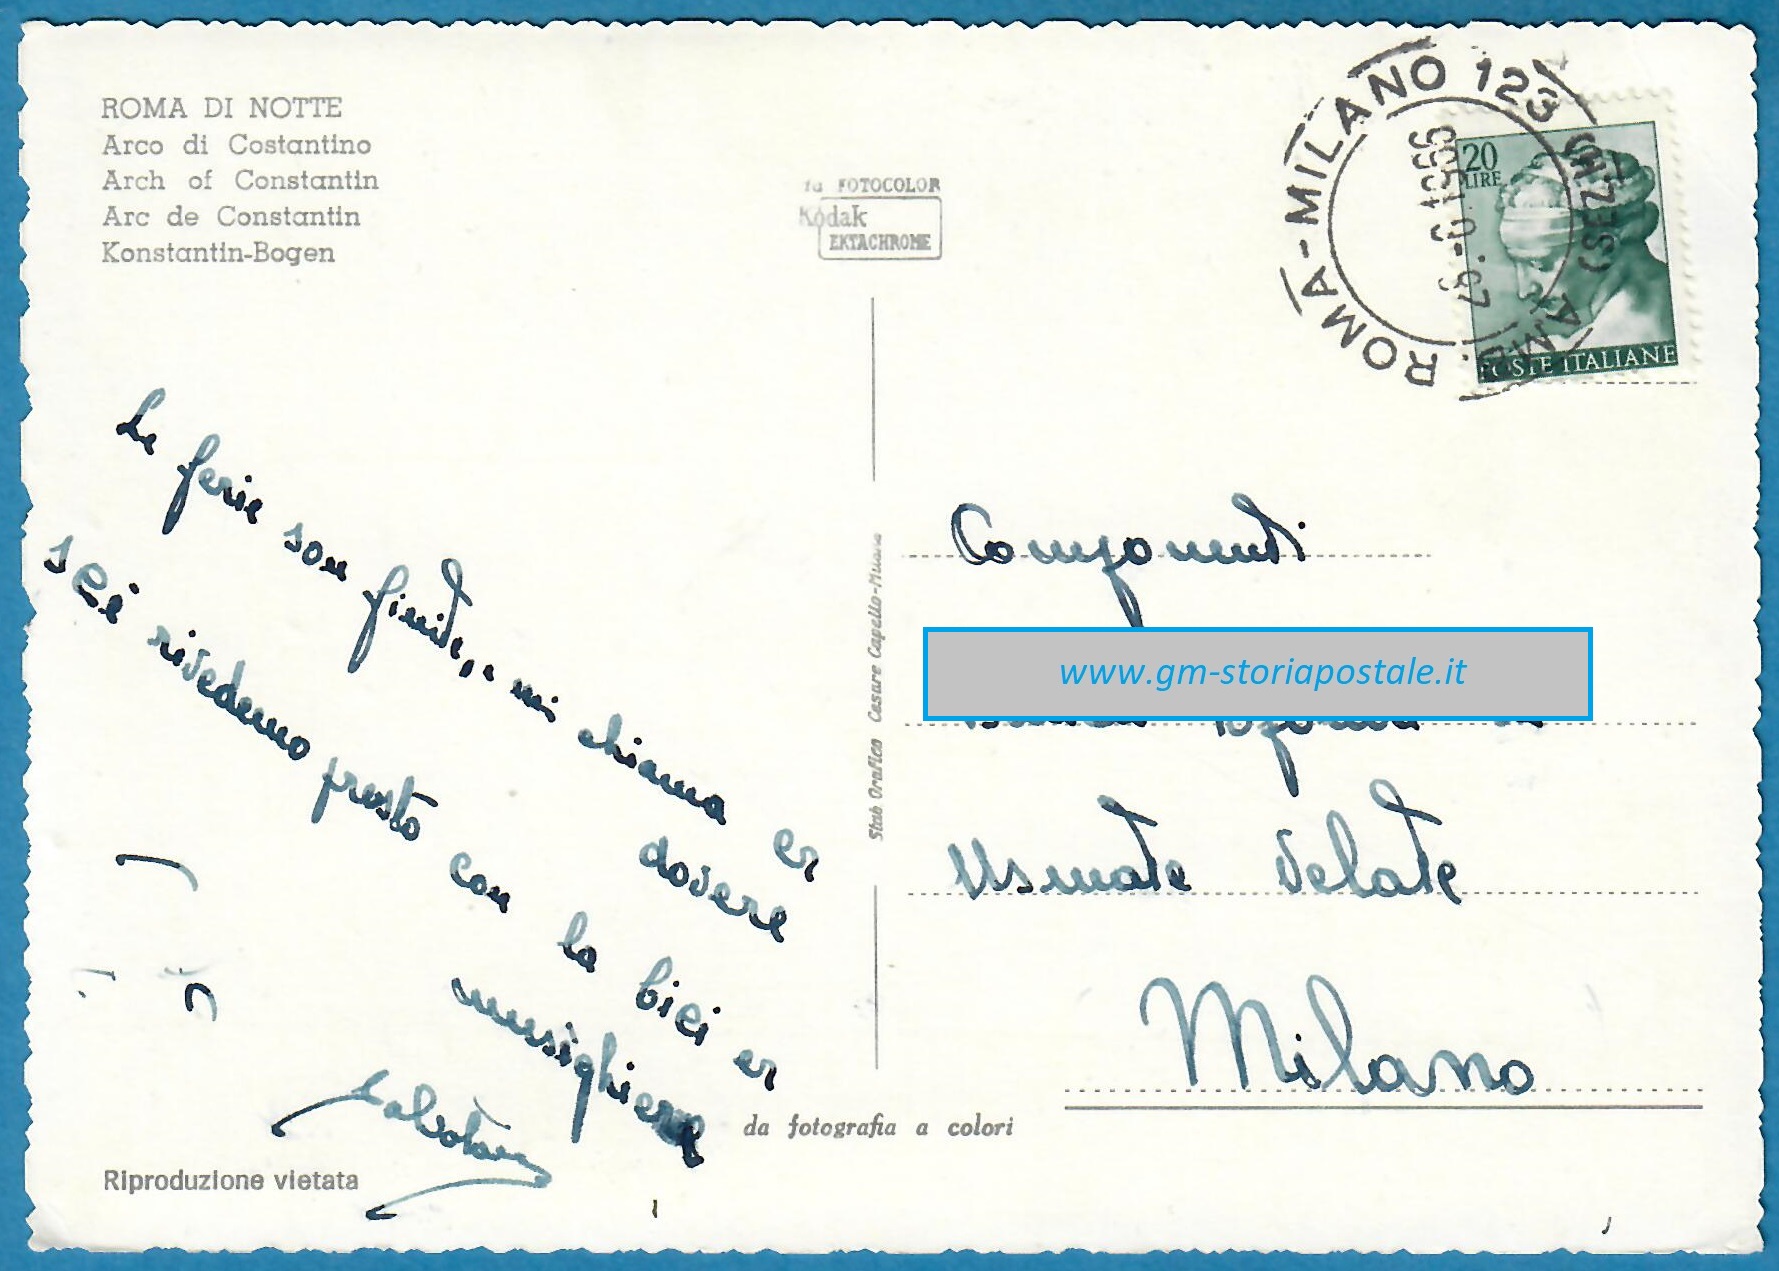 ROMA DI NOTTE
Arco di Costantino
Arch of Constantin
Arc de Constantin
Konstantin-Bogen
FOTOCOLOR
Kodak
EKTACHROME
ROMA-MILANO 123
AMB.
(SEZ.
20
LIRE
POSTE ITALIANE
Le ferie son finite, e mi chiama er
dovere
sei rivedemo presto con la bici er
musighiere
Stab. Grafico Cesare Capello-Milano
Componenti
www.gm-storiapostale.it
Usmate Velate
Milano
da fotografia a colori
Riproduzione vietata